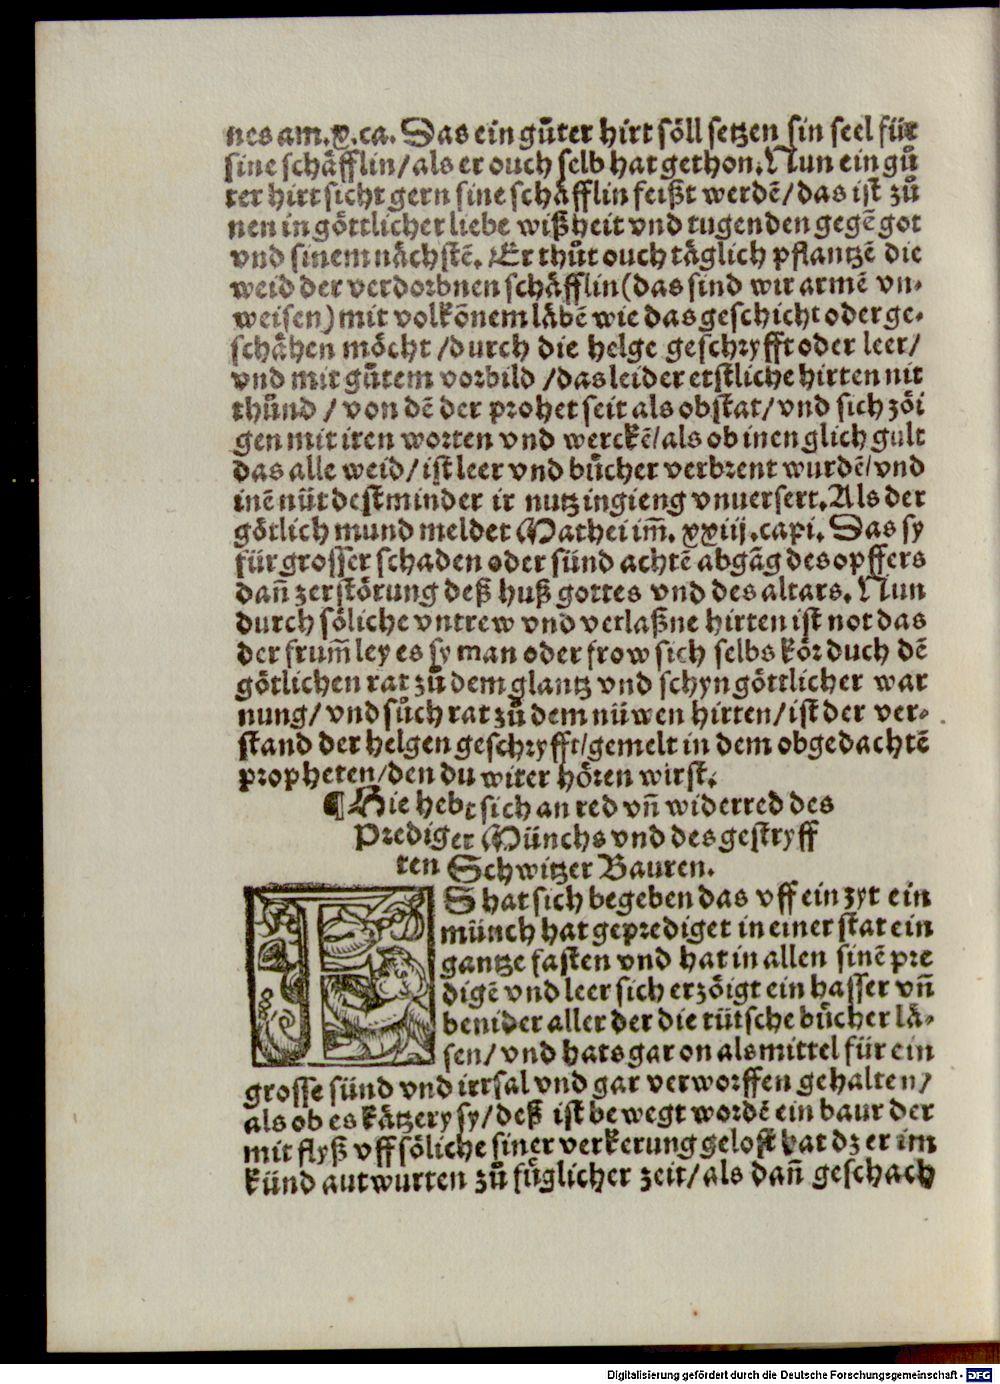 nes am.x.ca. Das ein gůter hirt söll setzen sin seel für
sine schäfflin/als er ouch selb hat gethon. Nun ein gů
ter hirt sicht gern sine schäfflin feißt werdē/das ist zů
nen in göttlicher liebe wißheit vnd tugenden gegē got
vnd sinem nächstē. Er thůt ouch täglich pflantzē die
weid der verdorbnen schäfflin(das sind wir armē vn⸗
weisen) mit volkōnem läbē wie das geschicht oder ge⸗
schähen möcht/durch die helge geschryfft oder leer/
vnd mit gůtem vorbild/das leider etstliche hirten nit
thůnd/von dē der prohet seit als obstat/vnd sich zöi
gen mit iren worten vnd werckē/als ob inen glich gult
das alle weid/ist leer vnd bücher verbrent wurdē/vnd
inē nüt destminder ir nutz ingieng vnuersert. Als der
götlich mund meldet Mathei im̄. xxiij.capi. Das sy
für grosser schaden oder sünd achtē abgāg des opffers
dañ zerstörung deß huß gottes vnd des altars. Nun
durch söliche vntrew vnd verlaßne hirten ist not das
der frum̄ ley es sy man oder frow sich selbs kör duch dē
götlichen rat zů dem glantz vnd schyn göttlicher war
nung/vnd sůch rat zů dem nüwen hirten/ist der ver⸗
stand der helgen geschryfft/gemelt in dem obgedachtē
propheten/den du witer hören wirst.
¶ Hie hebt sich an red vñ widerred des
Prediger Münchs vnd des gestryff
ten Schwitzer Bauren.
ES hat sich begeben das vff ein zyt ein
münch hat geprediget in einer stat ein
gantze fasten vnd hat in allen sinē pre
digē vnd leer sich erzöigt ein hasser vñ
benider aller der die tütsche bücher lä⸗
sen/vnd hats gar on als mittel für ein
grosse sünd vnd irrsal vnd gar verworffen gehalten/
als ob es kätzery sy/deß ist bewegt wordē ein baur der
mit flyß vff söliche siner verkerung gelost hat dz er im
künd antwurten zů füglicher zeit/als dañ geschach
Digitalisierung gefördert durch die Deutsche Forschungsgemeinschaft - DFG